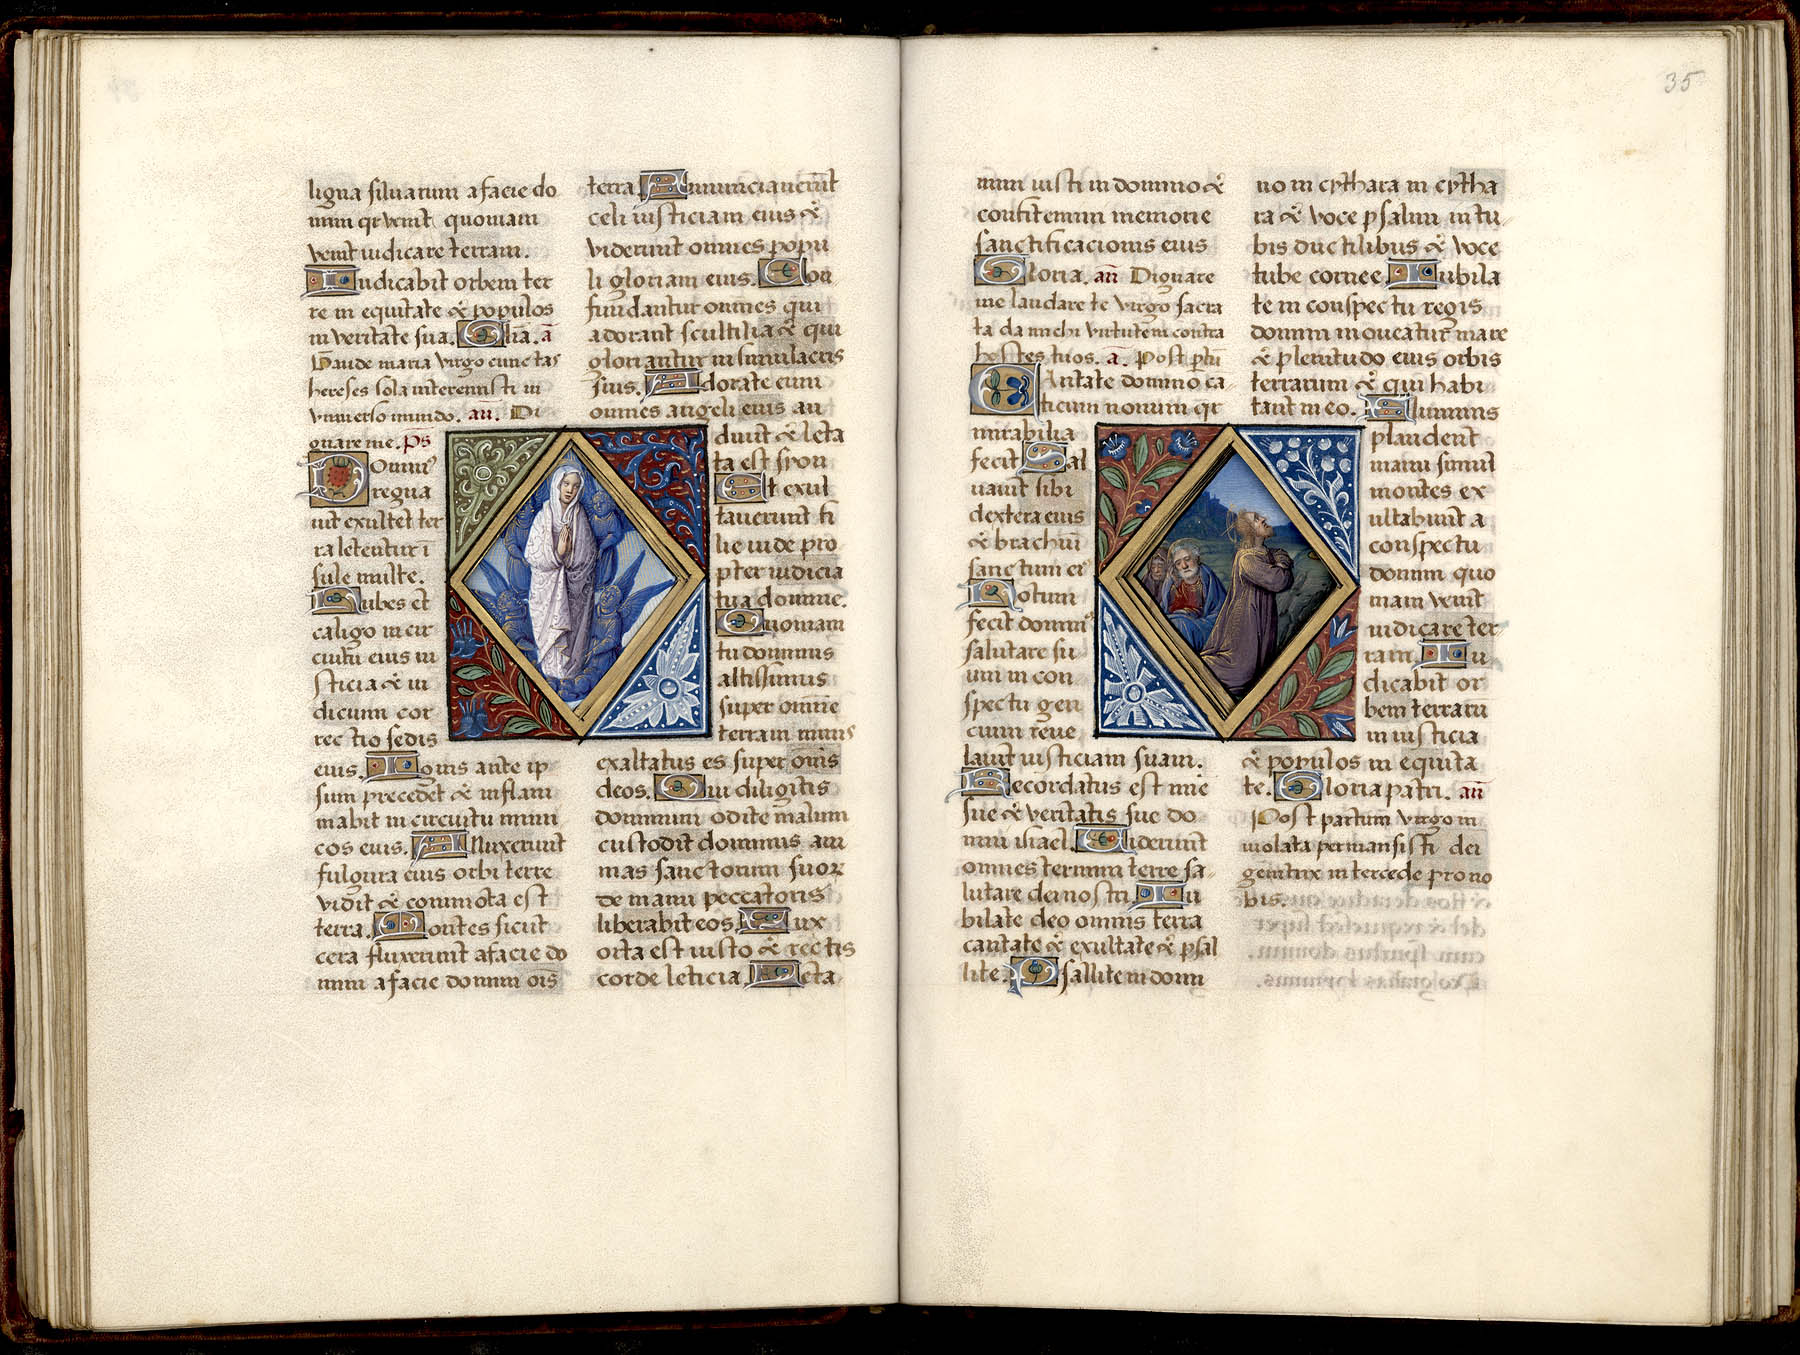 ligna siluarum a facie do
mini qr venit quoniam
venit iudicare terram.
Iudicabit orbem ter
re in equitate & populos
in veritate sua. Gl̃ia. a̅
Gaude maria virgo cunctas
hereses sola interemisti in
vniuerso mundo. an̅. Di
gnare me. ps
Dominꝰ
regna
uit exultet ter
ra letentur ī
sule multe.
Nubes et
caligo in cir
cuitu eius iu
sticia & iu
dicium cor
rectio sedis
eius. Ignis ante ip
sum precedet & inflam
mabit in circuitu inimi
cos eius. Alluxerunt
fulgura eius orbi terre
vidit & commota est
terra. Montes sicut
cera fluxerunt a facie do
mini a facie domini oīs
terra. Annunciauerūt
celi iusticiam eius &
viderunt omnes popu
li gloriam eius. Con
fundantur omnes qui
adorant scultilia & qui
gloriantur in simulacris
suis. Adorate eum
omnes angeli eius au
diuit & leta
ta est syon
Et exul
tauerunt fi
lie iude pro
pter iudicia
tua domine.
Quoniam
tu dominus
altissimus
super omnē
terram nimis
exaltatus es super om̄s
deos. Qui diligitis
dominum odite malum
custodit dominus ani
mas sanctorum suoꝝ
de manu peccatoris
liberabit eos. Lux
orta est iusto & rectis
corde leticia. Leta
35
mini iusti in domino &
confitemini memorie
sanctificacionis eius
Gloria. an̅ Dignare
me laudare te virgo sacra
ta da michi virtutem contra
hostes tuos. a̅. Post ptū
Cantate domino ca-
ticum nouum qr
mirabilia
fecit Sal
uauit sibi
dextera eius
& brachiū
sanctum eiꝰ
Notum
fecit dominꝰ
salutare su
um in con
spectu gen
cium reue
lauit iusticiam suam.
Recordatus est mīe
sue & veritatis sue do
mui israel. Viderunt
omnes termini terre sa-
lutare dei nostri. Iu
bilate deo omnis terra
cantate & exultate & psal
lite. Psallite in domi
no in cythara in cytha
ra & voce psalmi in tu
bis ductilibus & voce
tube cornee. Iubila
te in conspectu regis
domini moueatur mare
& plenitudo eius orbis
terrarum & qui habi
tant in eo. Flumina
plaudent
manu simul
montes ex
ultabunt a
conspectu
domini quo
niam venit
iudicare ter
ram Iu
dicabit or
bem terrarū
in iusticia
& populos in equita
te. Gloria patri. an̅
Post partum virgo in
uiolata permansisti dei
genitrix intercede pro no
bis.